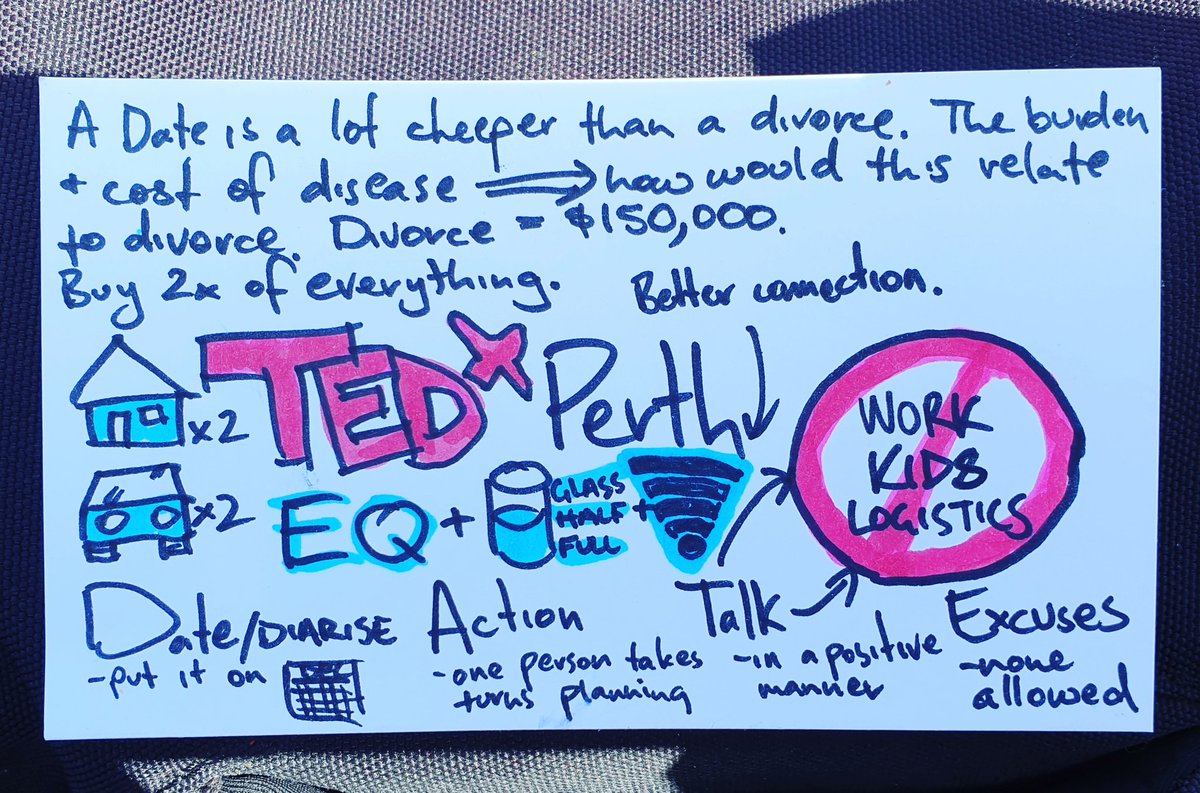 A Date is a lot cheeper than a divorce. The burden
+ cost of disease ⟹ how would this relate
to divorce. Divorce = $150,000.
Buy 2x of everything. Better connection.
x2 TEDx Perth
x2 EQ + GLASS HALF FULL +
WORK
KIDS
LOGISTICS
Date/DIARISE
-put it on
Action
-one person takes
turns planning
Talk
-in a positive
manner
Excuses
-none
allowed